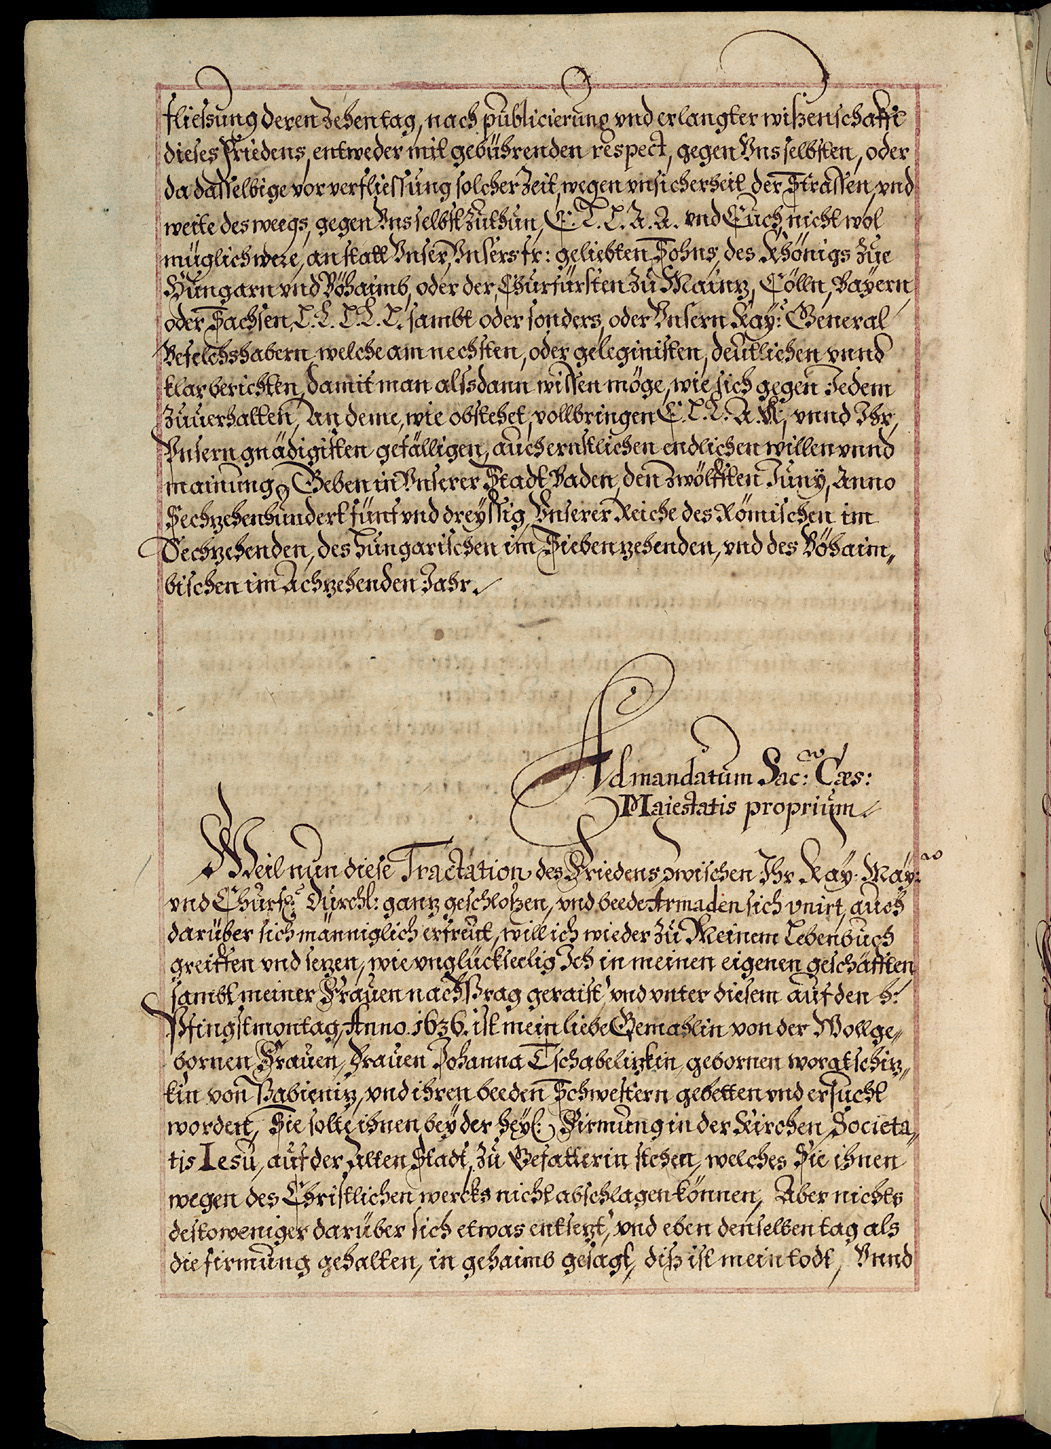 fliessung deren Zehen tag, nach publicierung vnd erlangter wißenschafft
dieses Friedens, entweder mit gebührenden respect, gegen Vns selbsten, oder
da dasselbige vor verfliessung solcher Zeit, wegen vnsicherheit der Strassen, vnd
weite des weegs, gegen Vns selbst Zuthun, E. L. L. A. A. vnd Euch, nicht wol
müglich were, anstatt Vnser, Vnsers fr: geliebten Sohns, des Khönigs Zue
Hungarn vnd Böhaimb, oder der, Churfürsten Zu Maintz, Cölln, Bayern
oder Sachsen, L. L. L. L. L. sambt oder sonders, oder Vnsern Kay: General
Befelchshabern welche am nechsten, oder geleginisten, deutlichen vnnd
klar berichten, damit man alssdann wissen möge, wie sich gegen Jedem
Zuuerhalten, An deme, wie obstehet, vollbringen E. L. L. A. A., vnnd Ihr,
Vnsern gnädigisten gefälligen, auch ernstlichen endlichen willen vnnd
mainung, Geben in Vnserer Stadt Baden, den zwölfften Juny, Anno
Sechzehenhundert fünf vnd dreyssig, Vnserer Reiche des Römischen im
Sechzehenden, des Hungarischen im Siebenzehenden, vnd des Böhaim„
bischen im Achzehenden Jahr.
Ad mandatum Sac: Cæs:
Maiestatis proprium
Weil nun diese Tractation des Friedens zwischen Ihr Kay: May:
vnd Churf: Durchl: gantz geschloßen, vnd beede Armaden sich vnirt, auch
darüber sich männiglich erfreut, will ich wieder zu Meinem Lebenbuch
greiffen vnd setzen, wie vnglückseelig Ich in meinen eigenen geschäfften
sambt meiner Frauen nach Prag geraist, vnd vnter diesem auf den h:
Pfingstmontag, Anno 1636. ist mein liebe Gemahlin von der Wollge„
bornen Frauen, Frauen Johanna Tschabelitzkin, gebornen woratschitz„
kin von Babienitz, vnd ihren beeden Schwestern gebetten vnd ersucht
worden, Sie solte ihnen bey der heyl: Firmung in der Kirchen Societa„
tis Iesu, auf der Alten Stadt, Zu Gefatterin stehen, welches Sie ihnen
wegen des Christlichen wercks nicht abschlagen können, Aber nichts
destoweniger darüber sich etwas entsetzt, vnd eben denselben tag als
die firmung gehalten, in gehaimb gesagt, diß ist mein todt, Vnnd